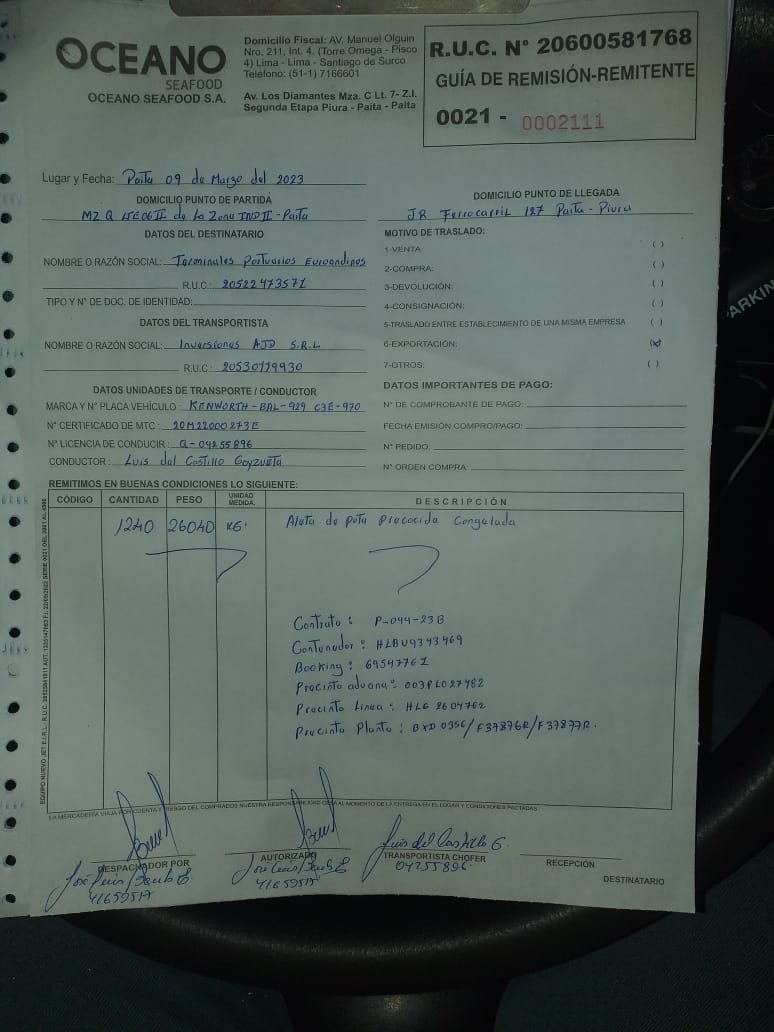 OCEANO
SEAFOOD
OCEANO SEAFOOD S.A.
Domicilio Fiscal: AV. Manuel Olguin
Nro. 211, Int. 4. (Torre Omega - Pisco
4) Lima - Lima - Santiago de Surco
Teléfono: (51-1) 7166601
Av. Los Diamantes Mza. C Lt. 7- Z.I.
Segunda Etapa Piura - Paita - Paita
R.U.C. N° 20600581768
GUÍA DE REMISIÓN-REMITENTE
0021 - 0002111
Lugar y Fecha: Paita 09 de Marzo del 2023
DOMICILIO PUNTO DE PARTIDA
MZ Q LTE06 II de La Zona IND II - Paita
DOMICILIO PUNTO DE LLEGADA
JR Ferrocarril 127 Paita - Piura
DATOS DEL DESTINATARIO
NOMBRE O RAZÓN SOCIAL: Terminales Portuarios Euroandinos
R.U.C: 20522473571
TIPO Y N° DE DOC. DE IDENTIDAD:
DATOS DEL TRANSPORTISTA
NOMBRE O RAZÓN SOCIAL: Inversiones AJD S.R.L
R.U.C: 20530129930
DATOS UNIDADES DE TRANSPORTE / CONDUCTOR
MARCA Y N° PLACA VEHÍCULO: KENWORTH - BAL-929 C3E-970
N° CERTIFICADO DE MTC: 20M22000273E
N° LICENCIA DE CONDUCIR: Q-04255896
CONDUCTOR: Luis del Castillo Goyzueta
MOTIVO DE TRASLADO:
1-VENTA: ( )
2-COMPRA: ( )
3-DEVOLUCIÓN: ( )
4-CONSIGNACIÓN: ( )
5-TRASLADO ENTRE ESTABLECIMIENTO DE UNA MISMA EMPRESA ( )
6-EXPORTACIÓN: (x)
7-OTROS: ( )
DATOS IMPORTANTES DE PAGO:
N° DE COMPROBANTE DE PAGO:
FECHA EMISIÓN COMPRO/PAGO:
N° PEDIDO:
N° ORDEN COMPRA:
REMITIMOS EN BUENAS CONDICIONES LO SIGUIENTE:
CÓDIGO CANTIDAD PESO UNIDAD MEDIDA. DESCRIPCIÓN
1240 26040 KG. Aleta de pota precocida Congelada
Contrato: P-044-23B
Contenedor: HLBU9343469
Booking: 69547761
Precinto aduana: 003PL027482
Precinto Linea: HLG 2604762
Precinto Planta: BXD 0356/F37876R/F37877R.
LA MERCADERÍA VIAJA POR CUENTA Y RIESGO DEL COMPRADOS NUESTRA RESPONSABILIDAD CESA AL MOMENTO DE LA ENTREGA EN EL LUGAR Y CONDICIONES PACTADAS
DESPACHADOR POR
AUTORIZADO
Luis del Castillo G.
TRANSPORTISTA CHOFER
04255896.
RECEPCIÓN
DESTINATARIO
PARKIN